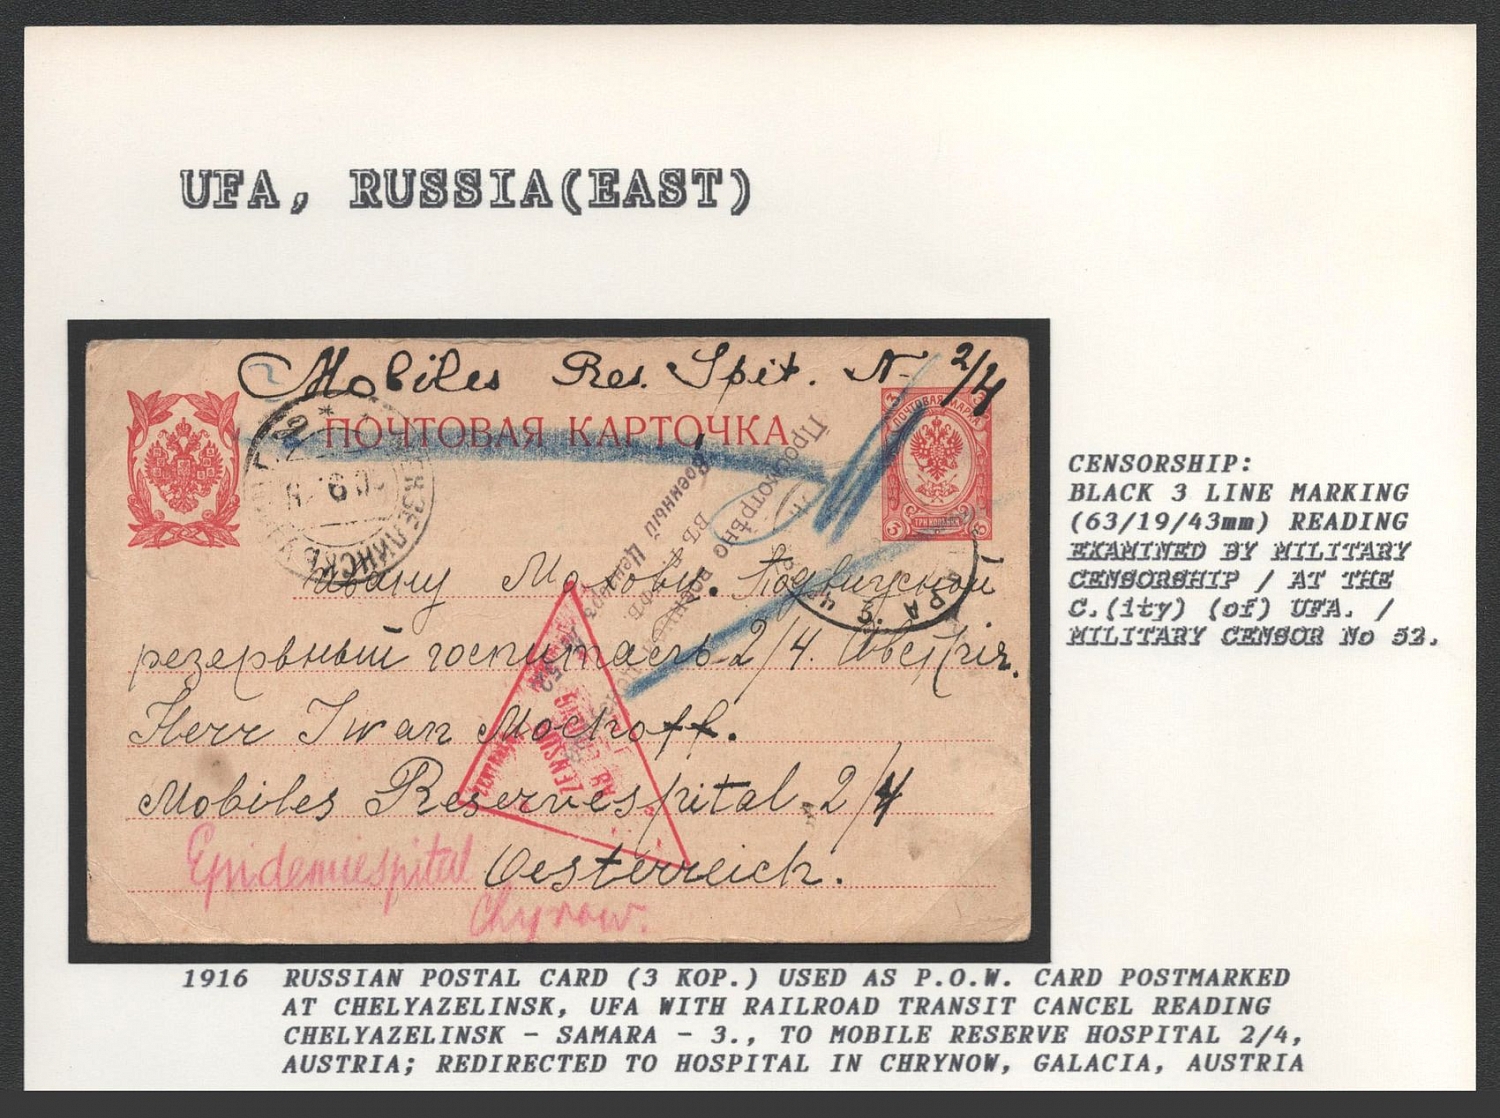 UFA, RUSSIA(EAST)
Mobiles Res. Spit. N. 2/4
ПОЧТОВАЯ КАРТОЧКА
ПОЧТОВАЯ МАРКА
3
3
ТРИ КОПѢЙКИ
Просмотрѣно военной
въ г. Уфѣ
Военный Цензоръ № 52
Ивану Мохову. Подвижной
резервный госпиталь 2/4. Австрія.
Herr Iwan Mochoff.
Mobiles Reservespital 2/4
Oesterreich.
Epidemiespital
Chyrow.
ZENSUR
CENSORSHIP:
BLACK 3 LINE MARKING
(63/19/43mm) READING
EXAMINED BY MILITARY
CENSORSHIP / AT THE
C.(ity) (of) UFA. /
MILITARY CENSOR No 52.
1916 RUSSIAN POSTAL CARD (3 KOP.) USED AS P.O.W. CARD POSTMARKED
AT CHELYAZELINSK, UFA WITH RAILROAD TRANSIT CANCEL READING
CHELYAZELINSK - SAMARA - 3., TO MOBILE RESERVE HOSPITAL 2/4,
AUSTRIA; REDIRECTED TO HOSPITAL IN CHRYNOW, GALACIA, AUSTRIA